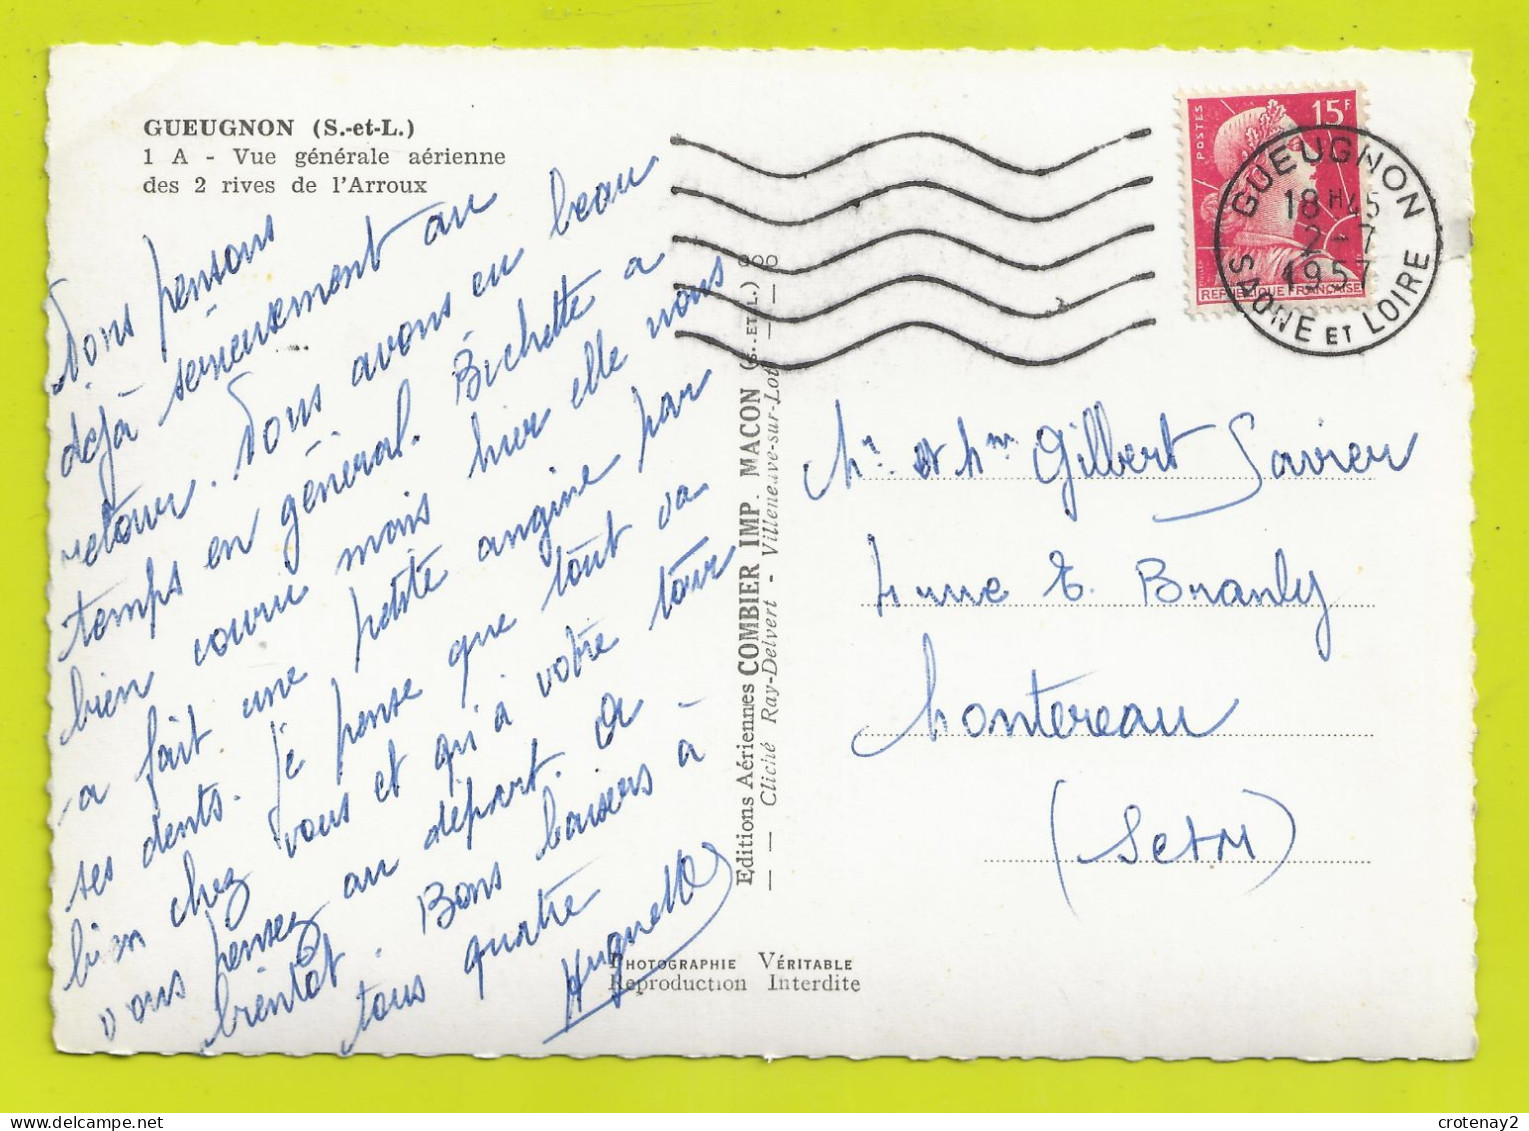 GUEUGNON (S.-et-L.)
1 A - Vue générale aérienne
des 2 rives de l'Arroux
Nous pensons
déjà sérieusement au
retour. Nous avons eu beau
temps en général. Bichette a
bien couru mais hier elle nous
a fait une petite angine par
ses dents. Je pense que tout va
bien chez vous et qu'à votre tour
vous pensez au départ. A
bientôt. Bons baisers à
tous quatre
Huguette
Editions Aériennes COMBIER IMP. MACON (S.-ET-L.)
Cliché Ray-Delvert - Villeneuve-sur-Lot
PHOTOGRAPHIE VÉRITABLE
Reproduction Interdite
POSTES
15F
REPUBLIQUE FRANÇAISE
GUEUGNON
18H45
2-7
1957
SAONE ET LOIRE
Mr et Mme Gilbert Savieu
4 rue E. Branly
Montereau
(S et M)
crotenay2